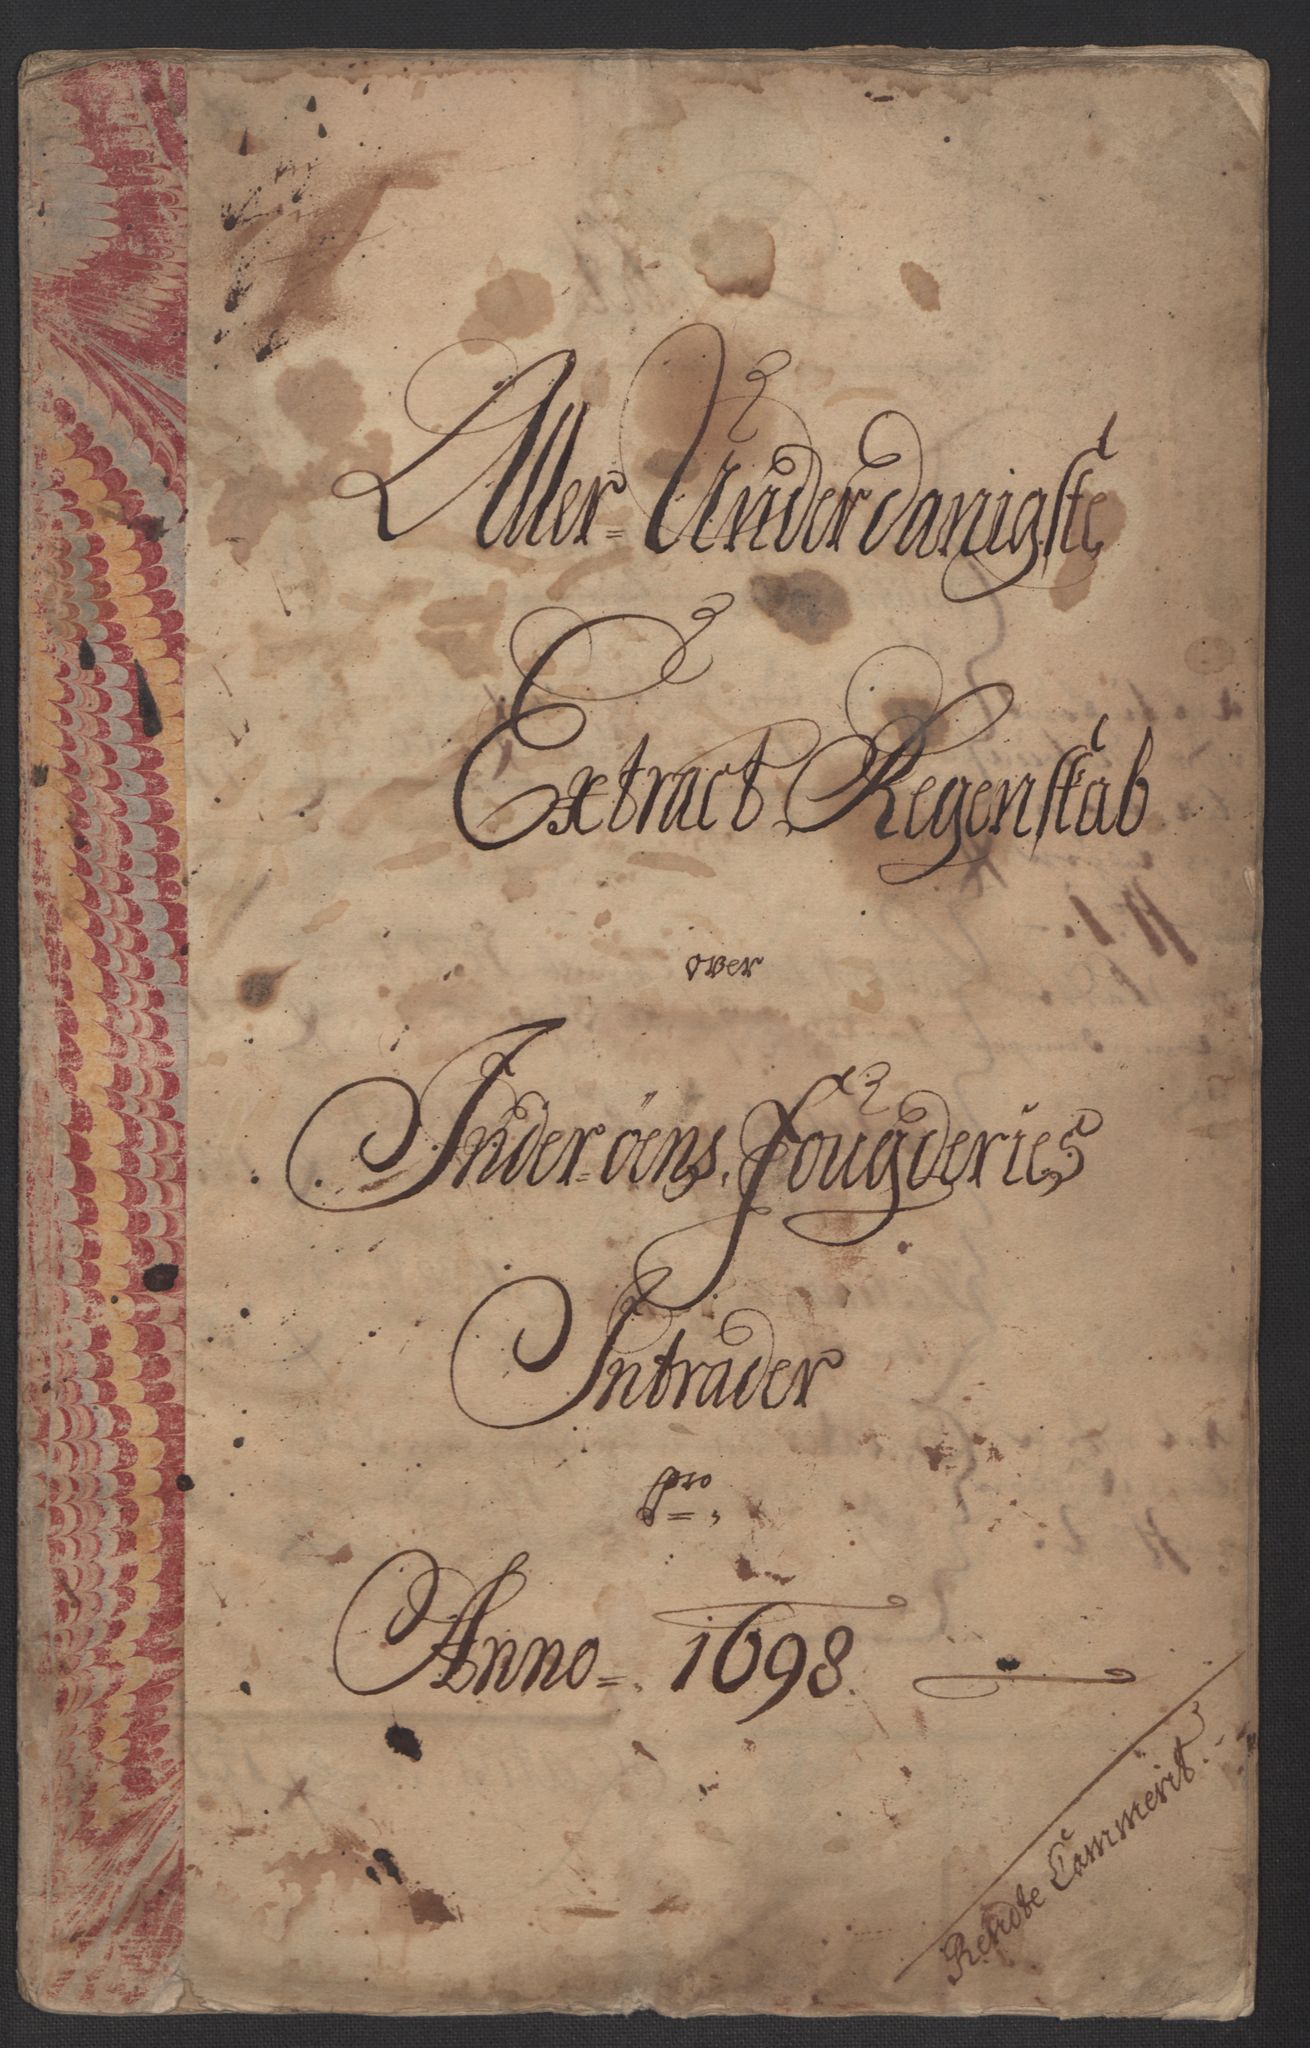 Aller= Underdanigste
Extract Regenskab
over
Inderöens Fougderies
Intrader
pro
Anno=. 1698.
Rendte Cammerit.